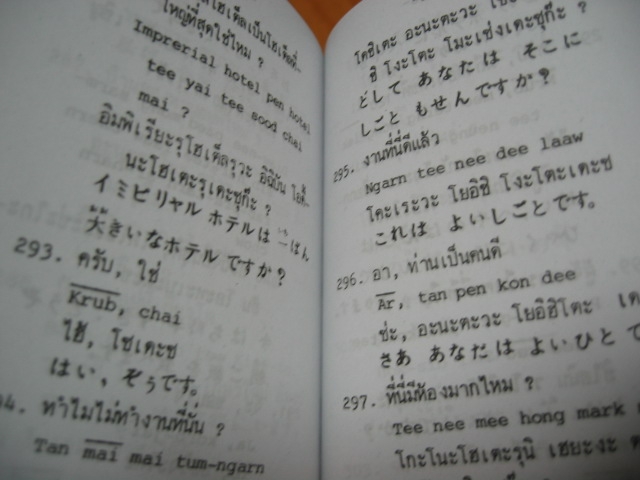 ใหญ่ที่สุดใช่ไหม ?
Imprerial hotel pen hotel
tee yai tee sood chai
mai ?
อิมพิเรียะรุโฮเต็ลรุวะ อิฉิบัน
นะโฮเตะรุเดะซุก๊ะ ?
イミピリャル ホテルは 一ばん
大きいなホテル ですか?
293. ครับ, ใช่
Krub, chai
ไฮ้, โซเดะซ
はい, ぞうです.
ทำไมไม่ทำงานที่นั่น ?
Tan mai mai tum-ngarn
โดชิเตะ อะนะตะวะ
ชิ โงะโตะ โมะเซ่งเดะซุก๊ะ ?
どして あなたは そこに
しごと もせんですか?
295. งานที่นี่ดีแล้ว
Ngarn tee nee dee laaw
โคะเระวะ โยอิชิ โงะโตะเดะซ
これは よいしごとです。
296. อา, ท่านเป็นคนดี
Ar, tan pen kon dee
ซ่ะ, อะนะตะวะ โยอิฮิโตะ เด
さあ あなたは よいひと で
297. ที่นี่มีห้องมากไหม ?
Tee nee mee hong mark
โกะโนะโฮเตะรุนิ เฮยะงะ